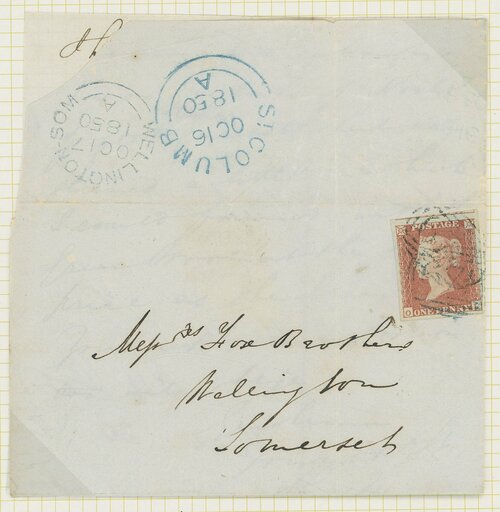 WELLINGTON-SOM
A
OC17
1850
ST COLUMB
A
OC16
1850
POSTAGE
O
ONE PENNY
Messrs Fox Brothers
Wellington
Somerset